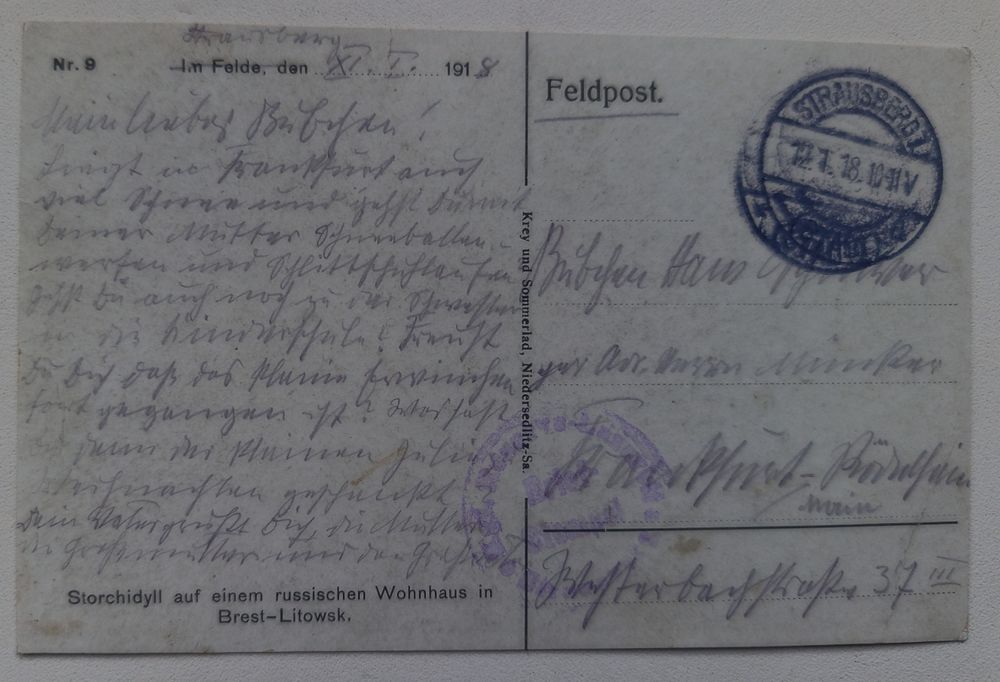 Strausberg
Nr. 9 Im Felde, den XI. I. 1918
Mein liebes Bübchen!
Liegt in Frankfurt auch
viel Schnee und gehst Du mit
Deiner Mutter Schneeballen
werfen und Schlittschuhlaufen
Gehst Du auch noch zu der Schwester
in die Kinderschule? Freust
Du Dich daß das kleine Erwinchen
fort gegangen ist? Was hast
Du denn der kleinen Julie
Weihnachten geschenkt
Dein Vater grüßt Dich, die Mutter
die Großmutter und den
Storchidyll auf einem russischen Wohnhaus in
Brest-Litowsk.
Krey und Sommerlad, Niedersedlitz-Sa.
Feldpost.
STRAUSBERG
12.1.18.10-11V
Bübchen Hans
per Adr. Herrn Münker
Frankfurt-Rödelheim
Main
Westerbachstraße 37 III